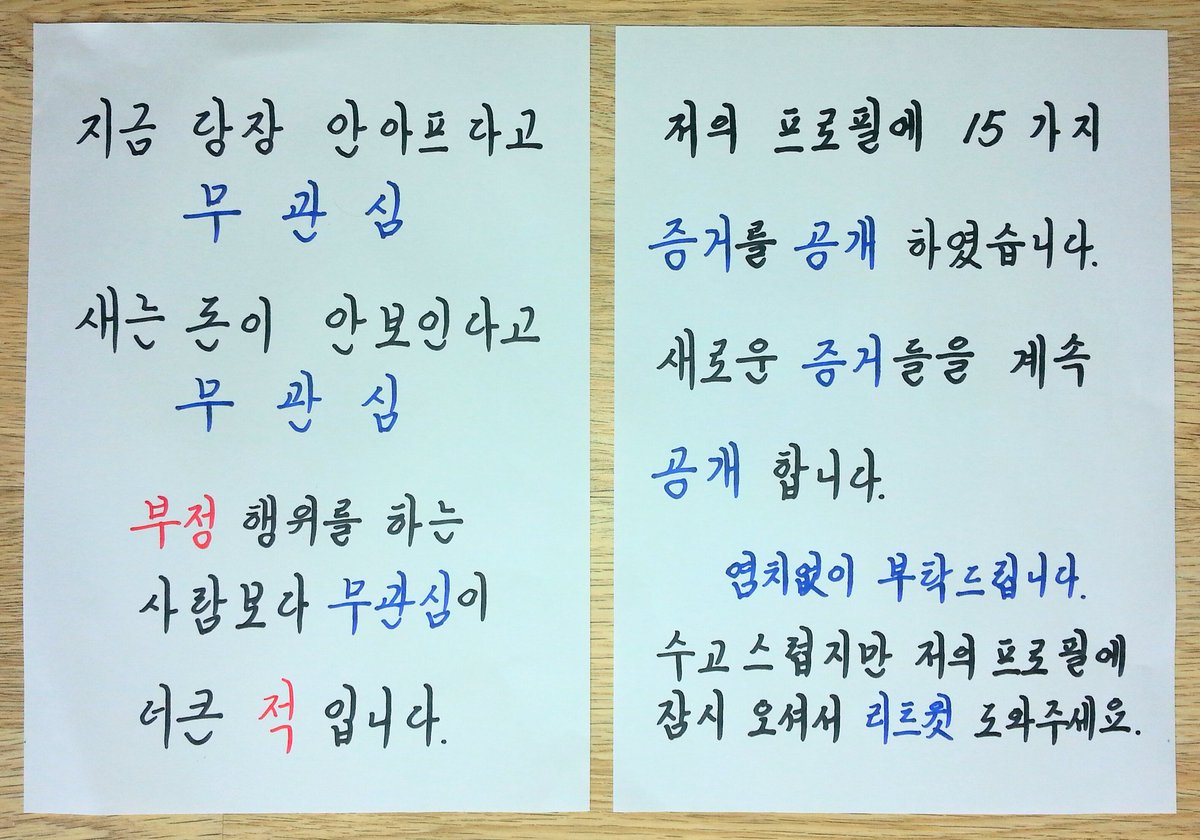 지금 당장 안아프다고
무 관 심
새는 돈이 안보인다고
무 관 심
부정 행위를 하는
사람보다 무관심이
더큰 적 입니다.
저의 프로필에 15 가지
증거를 공개 하였습니다.
새로운 증거들을 계속
공개 합니다.
염치없이 부탁드립니다.
수고스럽지만 저의 프로필에
잠시 오셔서 리트윗 도와주세요.